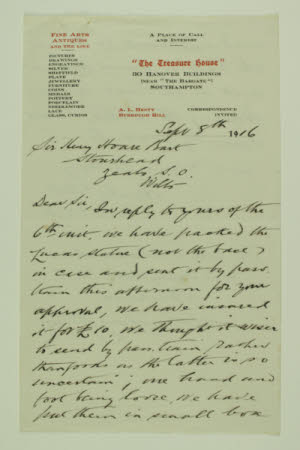 FINE ARTS
ANTIQUES
AND THE LIKE
PICTURES
DRAWINGS
ENGRAVINGS
SILVER
SHEFFIELD
PLATE
JEWELLERY
FURNITURE
COINS
MEDALS
POTTERY
PORCELAIN
NEEDLEWORK
LACE
GLASS, CURIOS
A PLACE OF CALL
AND INTEREST
"The Treasure House"
30 HANOVER BUILDINGS
(NEAR "THE BARGATE")
SOUTHAMPTON
A. L.
BURROUGH HILL
CORRESPONDENCE
INVITED
Sept 8th 1916
Sir Henry Hoare Bart
Stourhead
Zeals, S.O.
Wilts
Dear Sir, In reply to yours of the
6th inst. we have packed the
statue (not the base)
in case and sent it by pass.
train this afternoon for your
approval, we have insured
it for £10. We thought it wiser
to send by pass. train, rather
than goods as the latter is so
uncertain; one hand and
foot being loose, we have
put them in small box